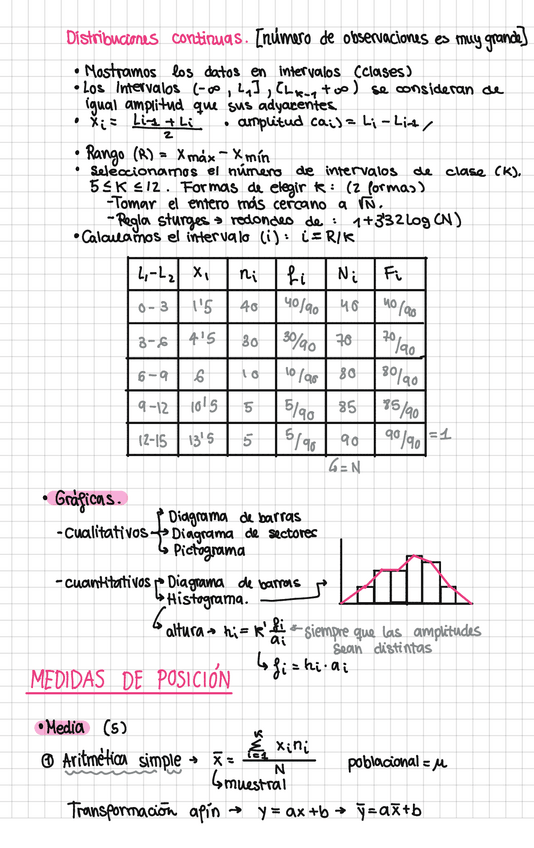 Distribuciones continuas. [número de observaciones es muy grande]
• Mostramos los datos en intervalos (clases)
• Los Intervalos (-∞, L1], [Lk-1 +∞) se consideran de
igual amplitud que sus adyacentes
• xi = Li-1 + Li / 2 • amplitud (ai) = Li - Li-1 /
• Rango (R) = Xmáx - Xmín
• Seleccionamos el número de intervalos de clase (K).
5 ≤ K ≤ 12. Formas de elegir K: (2 formas)
-Tomar el entero más cercano a √N.
-Regla sturges → redondeo de: 1+3'32Log(N)
• Calculamos el intervalo (i): i = R/K
L1-L2 X1 ni fi Ni Fi
0-3 1'5 40 40/90 40 40/90
3-6 4'5 30 30/90 70 70/90
6-9 6 10 10/90 80 80/90
9-12 10'5 5 5/90 85 85/90
12-15 13'5 5 5/90 90 90/90 =1
↳ = N
• Gráficas.
-cualitativos → Diagrama de barras
→ Diagrama de sectores
↳ Pictograma
-cuantitativos → Diagrama de barras
↳ Histograma.
↳ altura → hi = K' fi/ai ← siempre que las amplitudes
sean distintas
↳ fi = hi · ai
MEDIDAS DE POSICIÓN
• Media (5)
① Aritmética simple → x̄ = Σ(i=1, K) xi ni / N poblacional = μ
↳ muestral
Transformación afín → y = ax+b → ȳ = ax̄+b